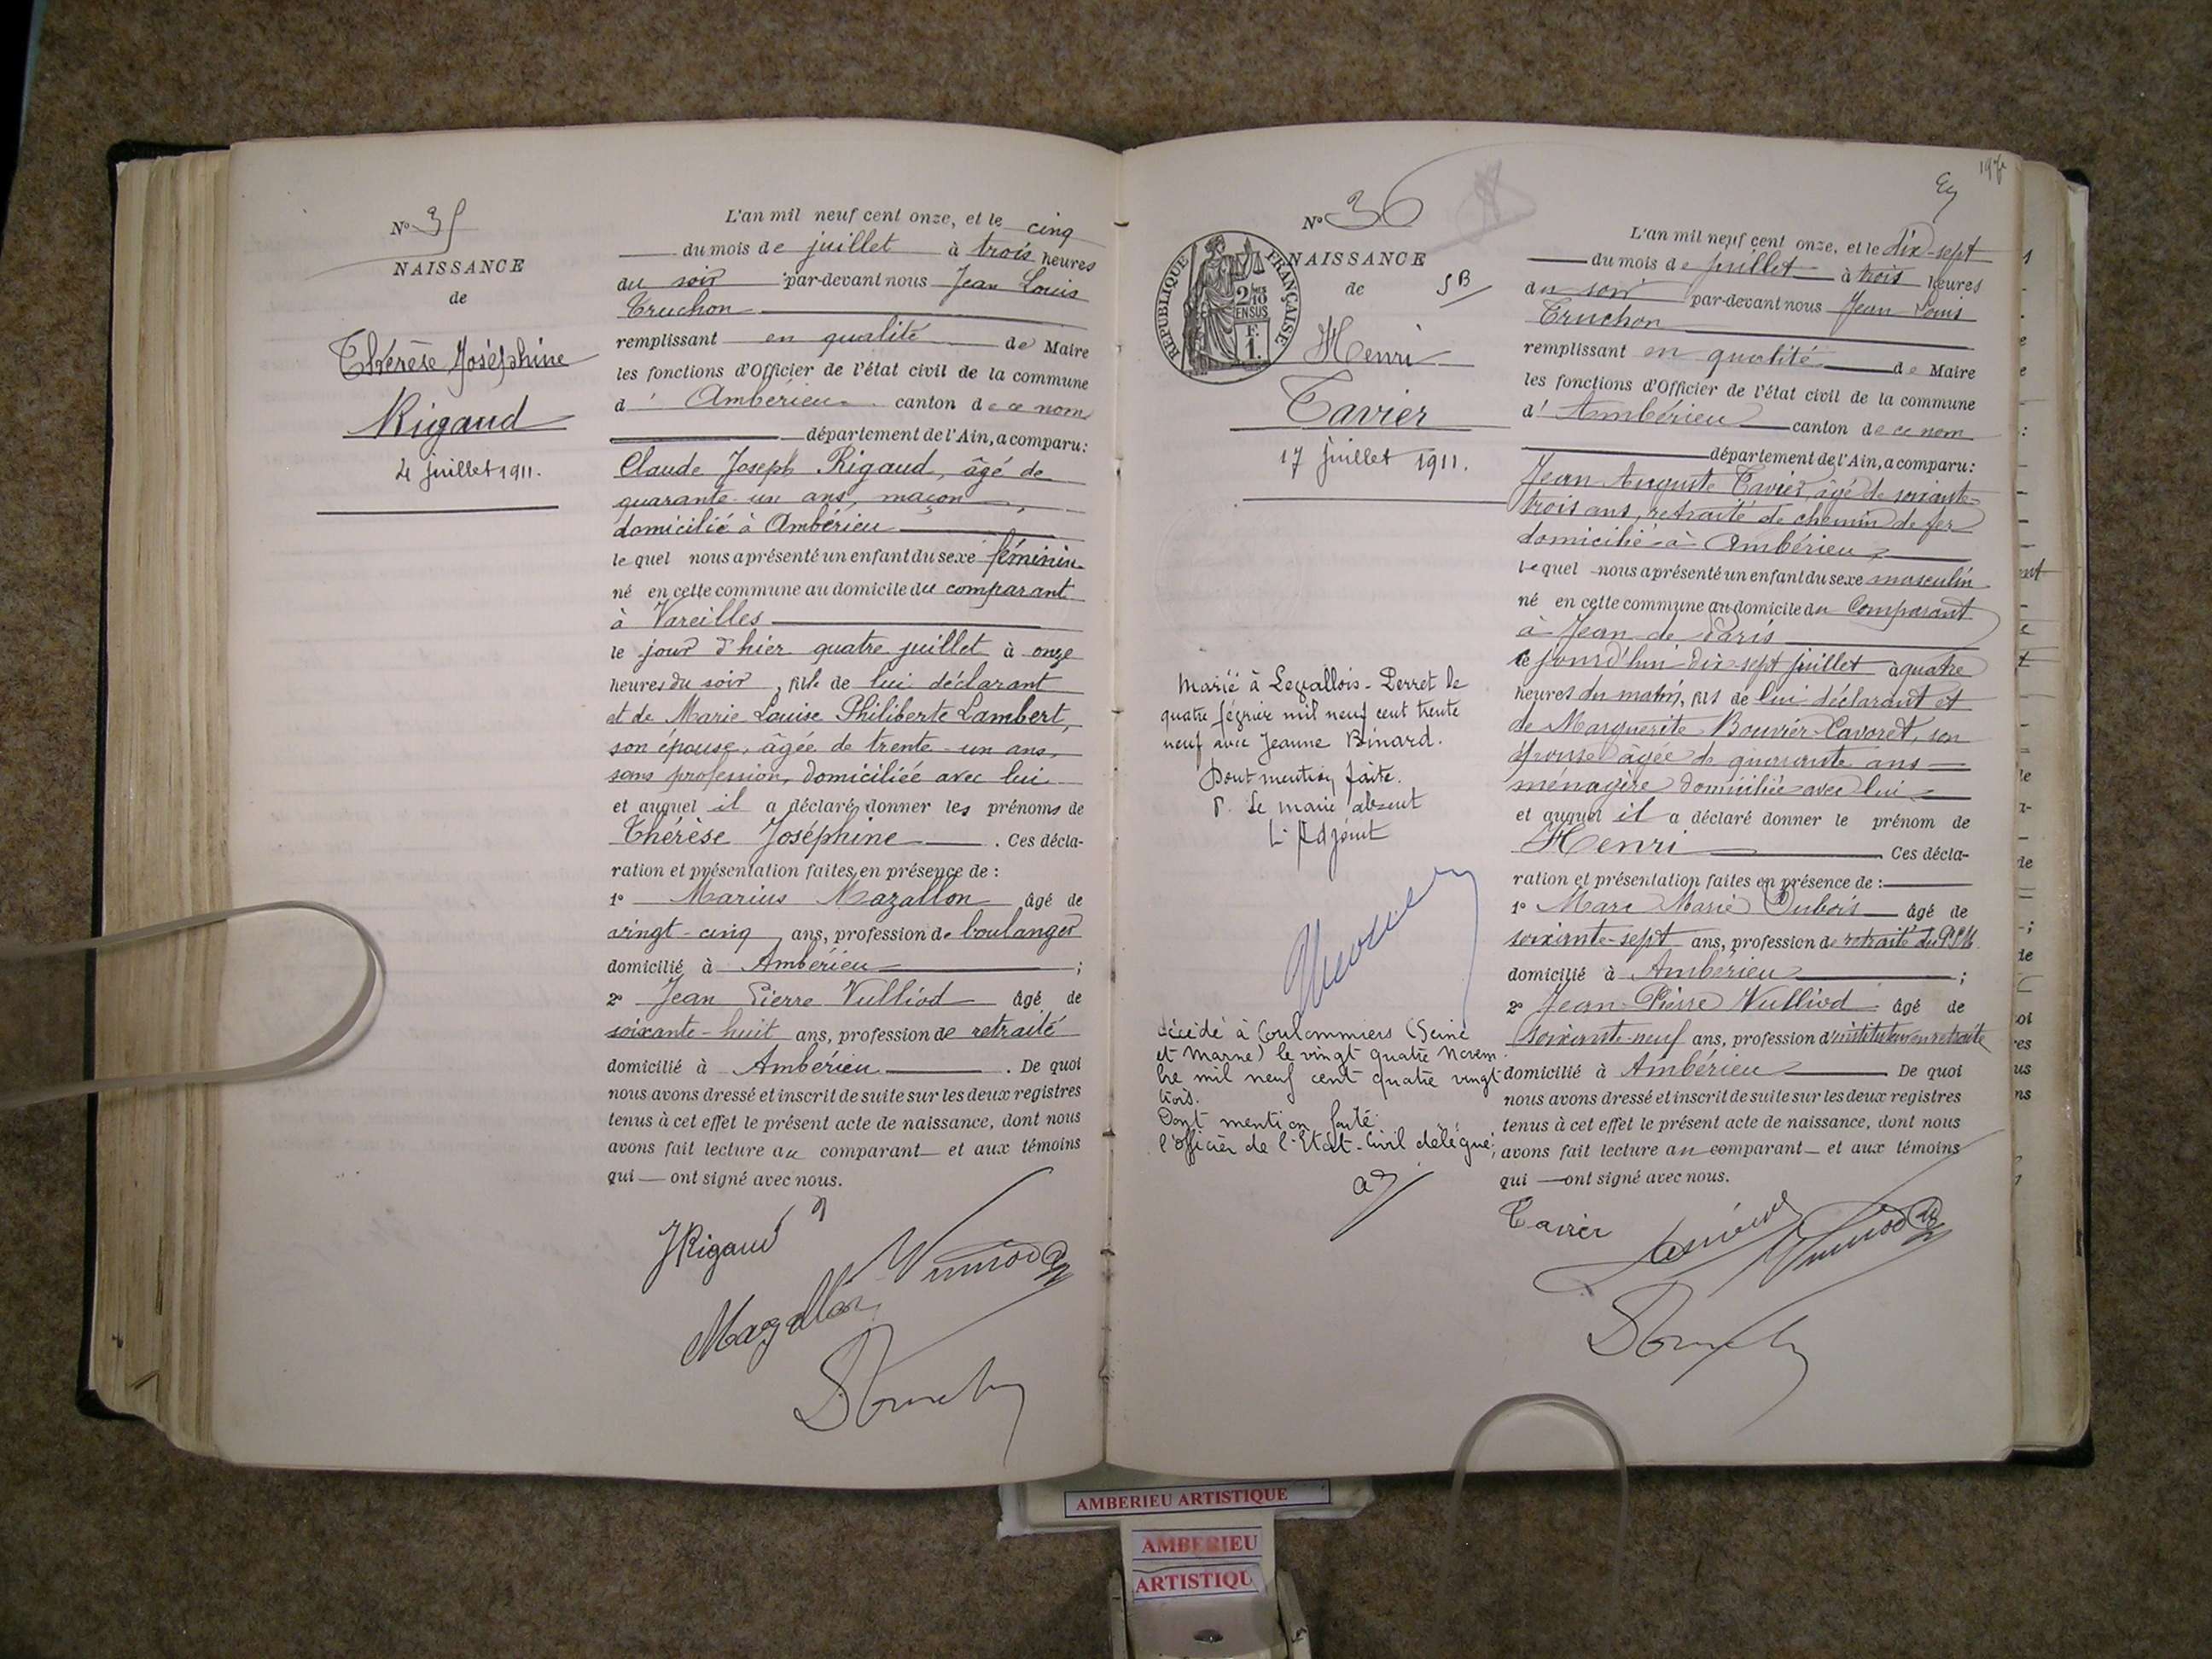 N° 35
NAISSANCE
de
Thérèse Joséphine
Rigaud
4 juillet 1911.
L'an mil neuf cent onze, et le cinq
du mois de juillet à trois heures
du soir par-devant nous Jean Louis
Truchon
remplissant en qualité de Maire
les fonctions d'Officier de l'état civil de la commune
d' Ambérieu canton de ce nom
département de l'Ain, a comparu:
Claude Joseph Rigaud, âgé de
quarante-un ans, maçon,
domicilié à Ambérieu
lequel nous a présenté un enfant du sexe féminin
né en cette commune au domicile du comparant
à Vareilles
le jour d'hier quatre juillet à onze
heures du soir, fille de lui déclarant
et de Marie Louise Philiberte Lambert,
son épouse, âgée de trente-un ans,
sans profession, domiciliée avec lui
et auquel il a déclaré donner les prénoms de
Thérèse Joséphine. Ces décla-
ration et présentation faites en présence de :
1° Marius Mazallon âgé de
vingt-cinq ans, profession de boulanger
domicilié à Ambérieu ;
2° Jean Pierre Vulliod âgé de
soixante-huit ans, profession de retraité
domicilié à Ambérieu. De quoi
nous avons dressé et inscrit de suite sur les deux registres
tenus à cet effet le présent acte de naissance, dont nous
avons fait lecture au comparant et aux témoins
qui ont signé avec nous.
JRigaud
Mazallon
N° 36
NAISSANCE
de
5B
RÉPUBLIQUE FRANÇAISE
2/10
EN SUS
F.
1.
Henri
Tavier
17 juillet 1911.
Marié à Levallois-Perret le
quatre février mil neuf cent trente
neuf avec Jeanne Binard.
Dont mention faite.
P. Le maire absent
L'Adjoint
décédé à Coulommiers (Seine
et Marne) le vingt quatre novem
bre mil neuf cent quatre vingt
trois.
Dont mention faite.
l'officier de l'Etat-Civil délégué;
197
L'an mil neuf cent onze, et le dix-sept
du mois de juillet à trois heures
du soir par-devant nous Jean Louis
Truchon
remplissant en qualité de Maire
les fonctions d'Officier de l'état civil de la commune
d' Ambérieu canton de ce nom
département de l'Ain, a comparu:
Jean Auguste Tavier, âgé de soixante-
trois ans, retraité de chemin de fer
domicilié à Ambérieu
lequel nous a présenté un enfant du sexe masculin
né en cette commune au domicile du Comparant
à Jean de Paris
le jourd'hui dix-sept juillet à quatre
heures du matin, fils de lui déclarant et
de Marguerite Bouvier-Cavoret, son
épouse âgée de quarante ans
ménagère domiciliée avec lui
et auquel il a déclaré donner le prénom de
Henri. Ces décla-
ration et présentation faites en présence de :
1° Marc Marie Dubois âgé de
soixante-sept ans, profession de retraité du P.L.M.
domicilié à Ambérieu ;
2° Jean-Pierre Vulliod âgé de
soixante-neuf ans, profession d'instituteur en retraite
domicilié à Ambérieu De quoi
nous avons dressé et inscrit de suite sur les deux registres
tenus à cet effet le présent acte de naissance, dont nous
avons fait lecture au comparant et aux témoins
qui ont signé avec nous.
Tavier
AMBERIEU ARTISTIQUE
AMBERIEU
ARTISTIQU